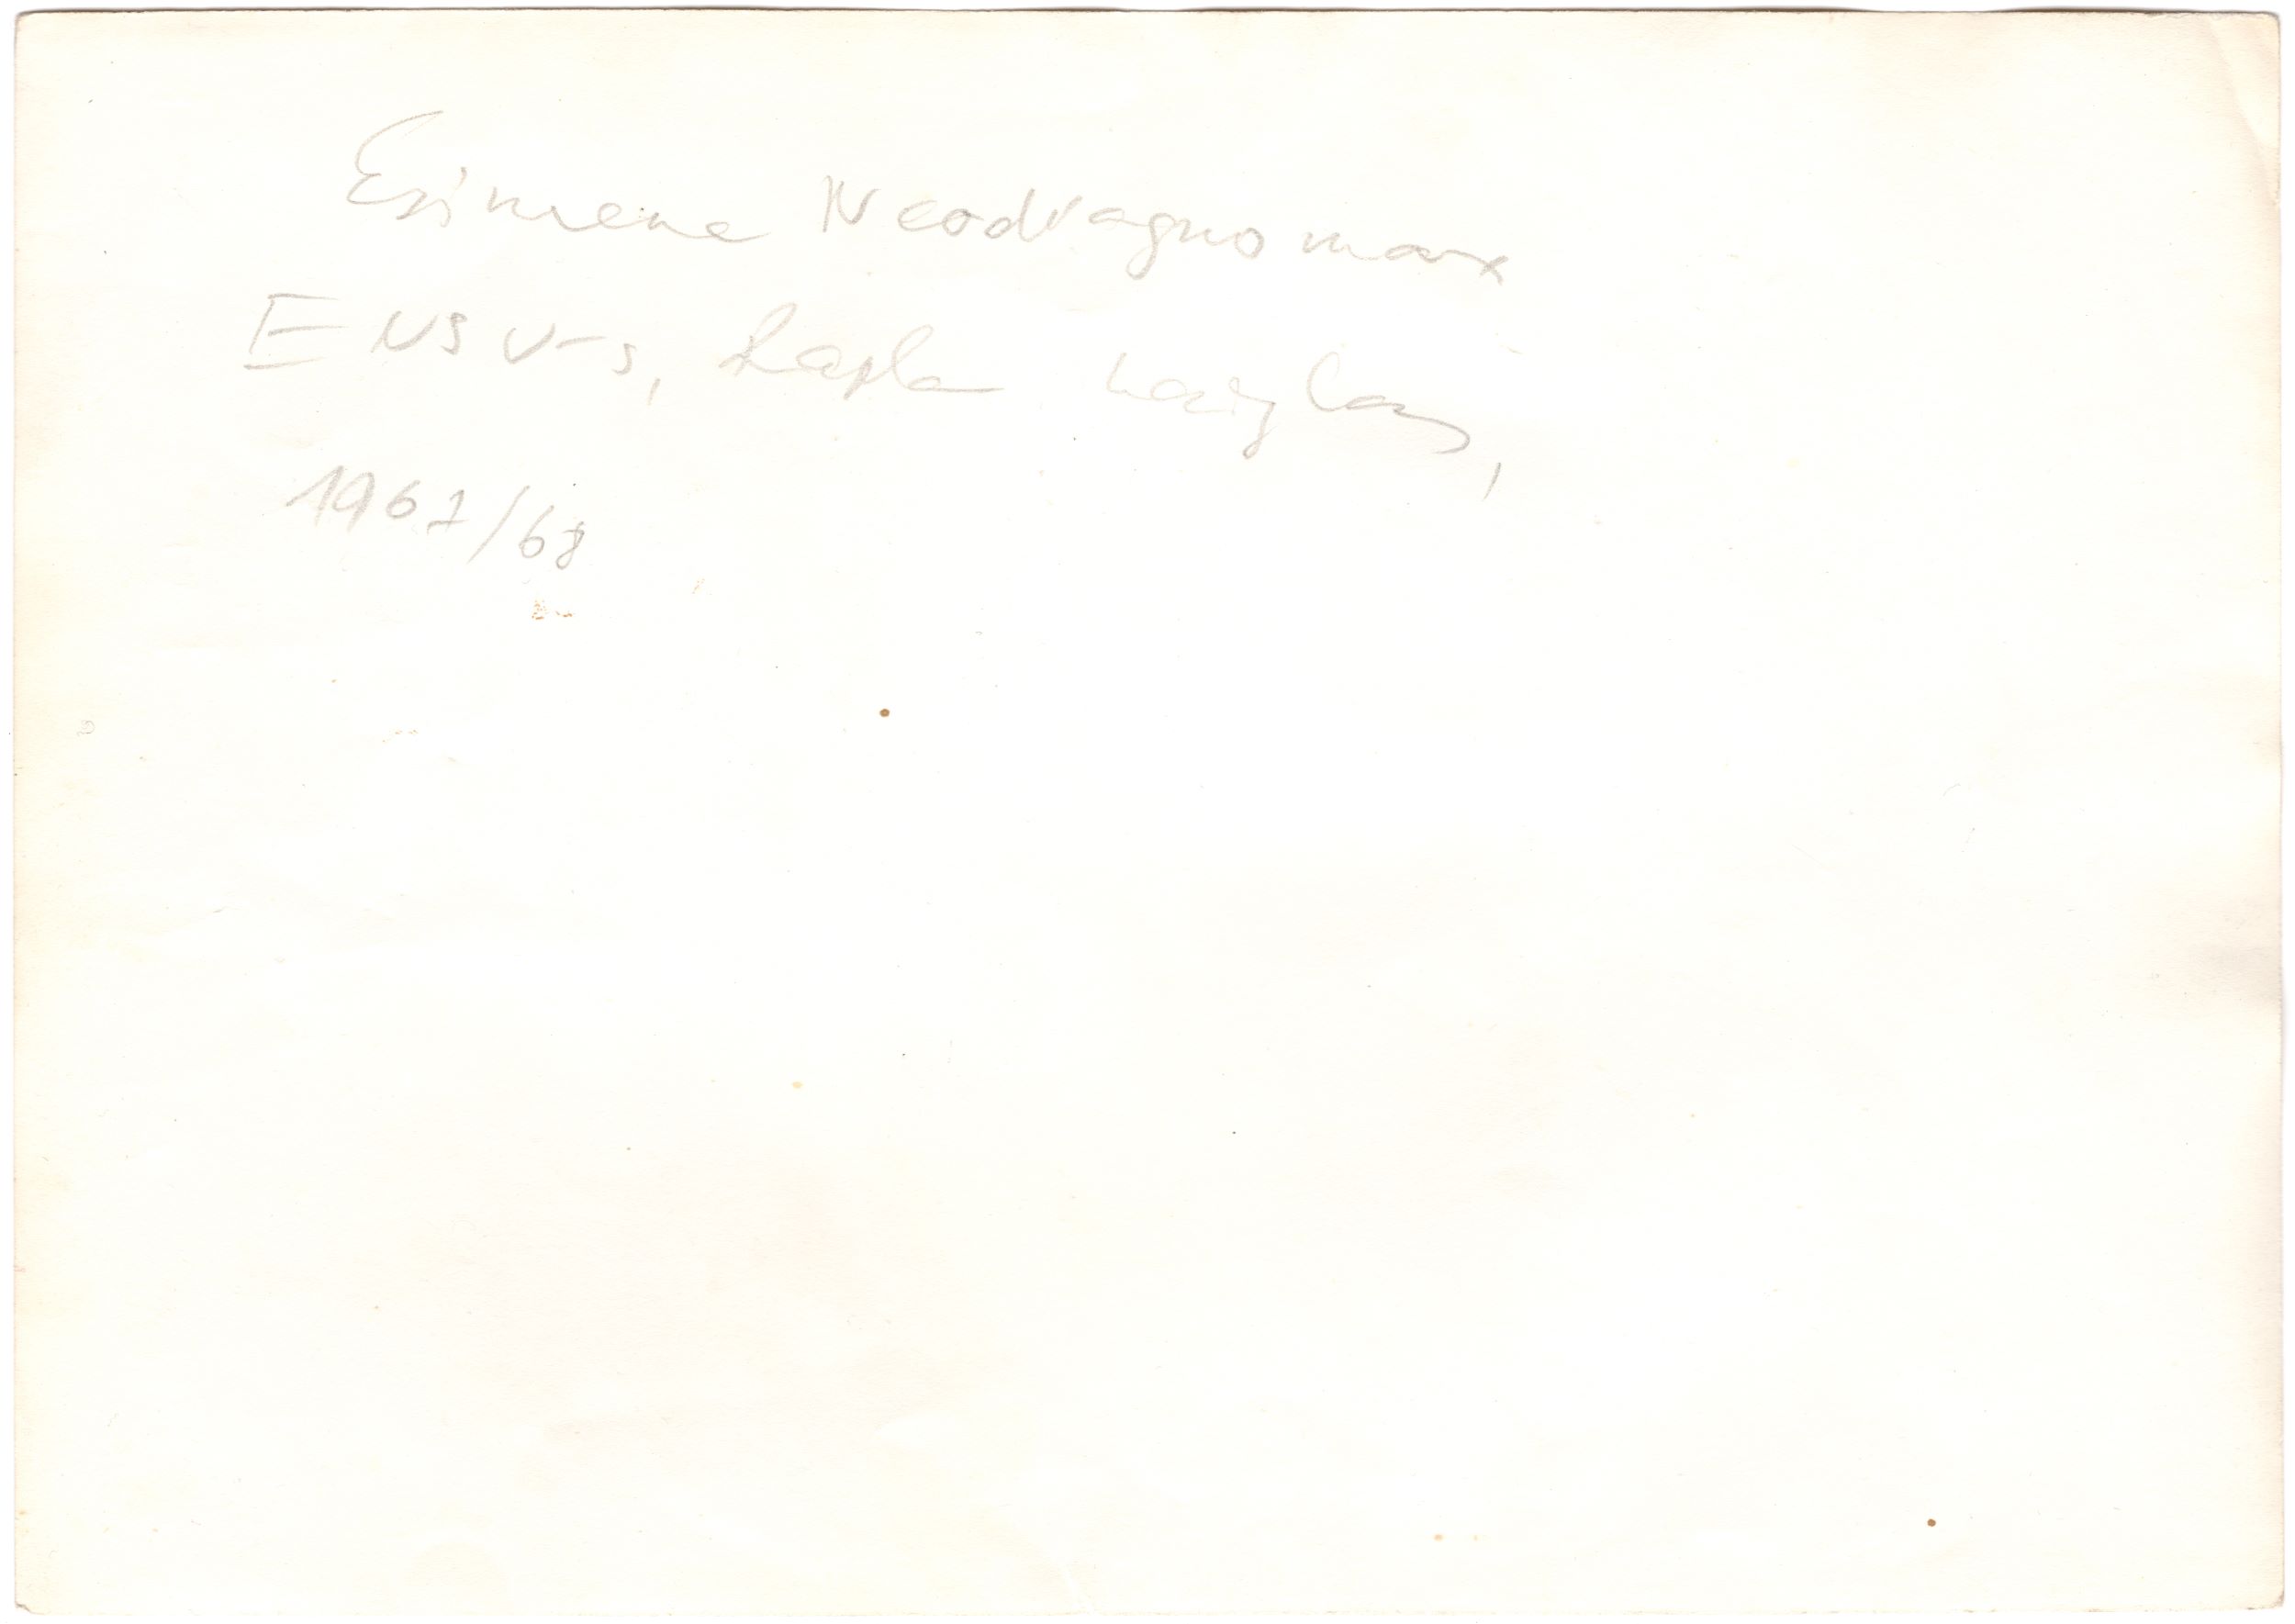 Esimene Neodiagnomax
ENSV-s, Rapla haiglas,
1967/68